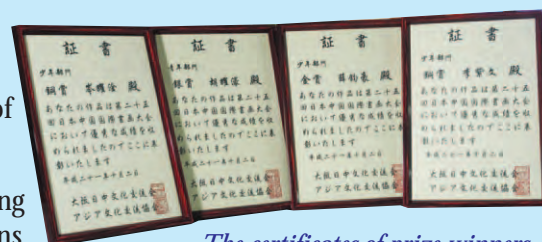 of
ng
ns
証 書
少年部门
銅賞 殿
あなたの作品は第二十五
回日本中国国際書画大会
において優秀な成績を収
められましたのでここに表
彰いたします
平成二十一年十月二日
大阪日中文化交流会
アジア文化交流協会
証 書
青年部门
銀賞 殿
あなたの作品は第二十五
回日本中国国際書画大会
において優秀な成績を収
められましたのでここに表
彰いたします
平成二十一年十月二日
大阪日中文化交流会
アジア文化交流協会
証 書
少年部门
金賞 殿
あなたの作品は第二十五
回日本中国国際書画大会
において優秀な成績を収
められましたのでここに表
彰いたします
平成二十一年十月二日
大阪日中文化交流会
アジア文化交流協会
証 書
少年部门
銅賞 殿
あなたの作品は第二十五
回日本中国国際書画大会
において優秀な成績を収
められましたのでここに表
彰いたします
平成二十一年十月二日
大阪日中文化交流会
アジア文化交流協会
The certificates of prize winners